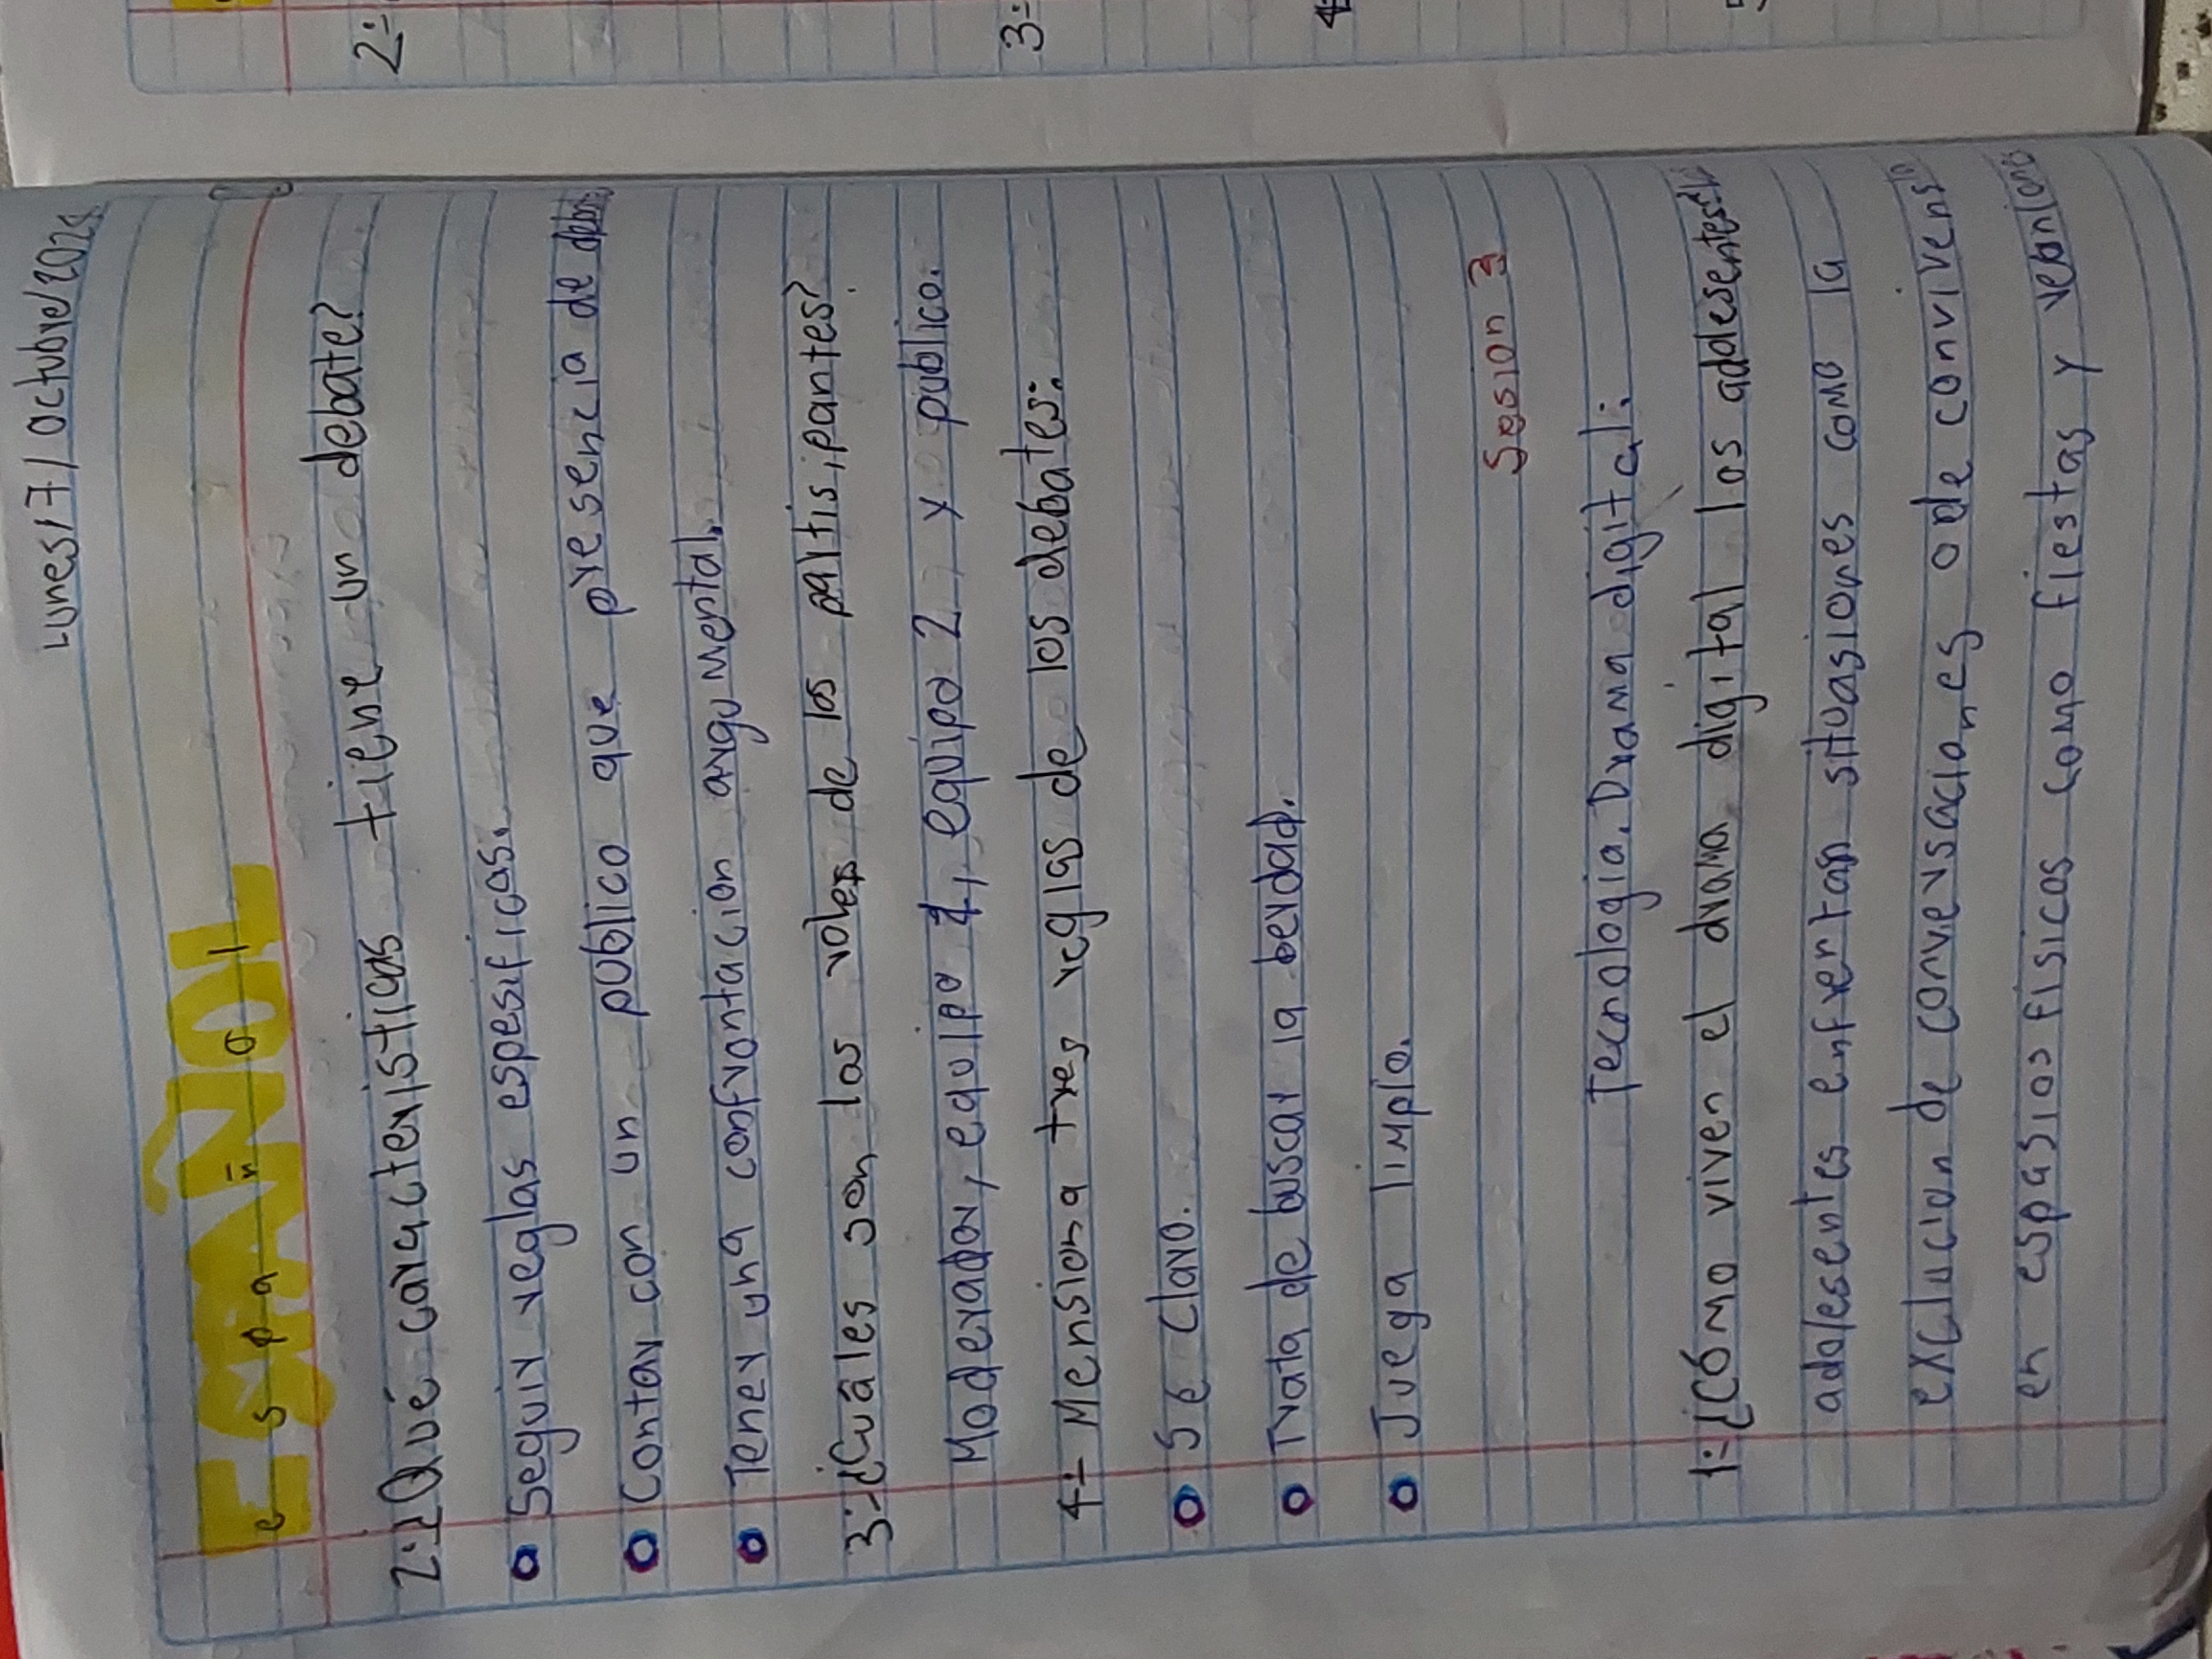 Lunes/7/octubre/2024
ESPAÑOL
español
2:-¿Qué caracteristicas tiene un debate?
Seguir reglas espesificas.
Contar con un publico que presencia de debate
Tener una confrontacion argumental.
3:-¿Cuáles son los roles de los paltisipantes?
Moderador, equipo 1, equipo 2 y publico.
4:- Mensiona tres reglas de los debates:
Sé claro.
Trata de buscar la berdad.
Juega limpio.
Sesion 3
Tecnologia. Drama digital:
1:-¿Cómo viven el drama digital los adolesentes?
adolesentes enfrentan situasiones como la
exclucion de conversaciones o de convivensia
en espasios fisicos como fiestas y
2:-
3:-
4:-